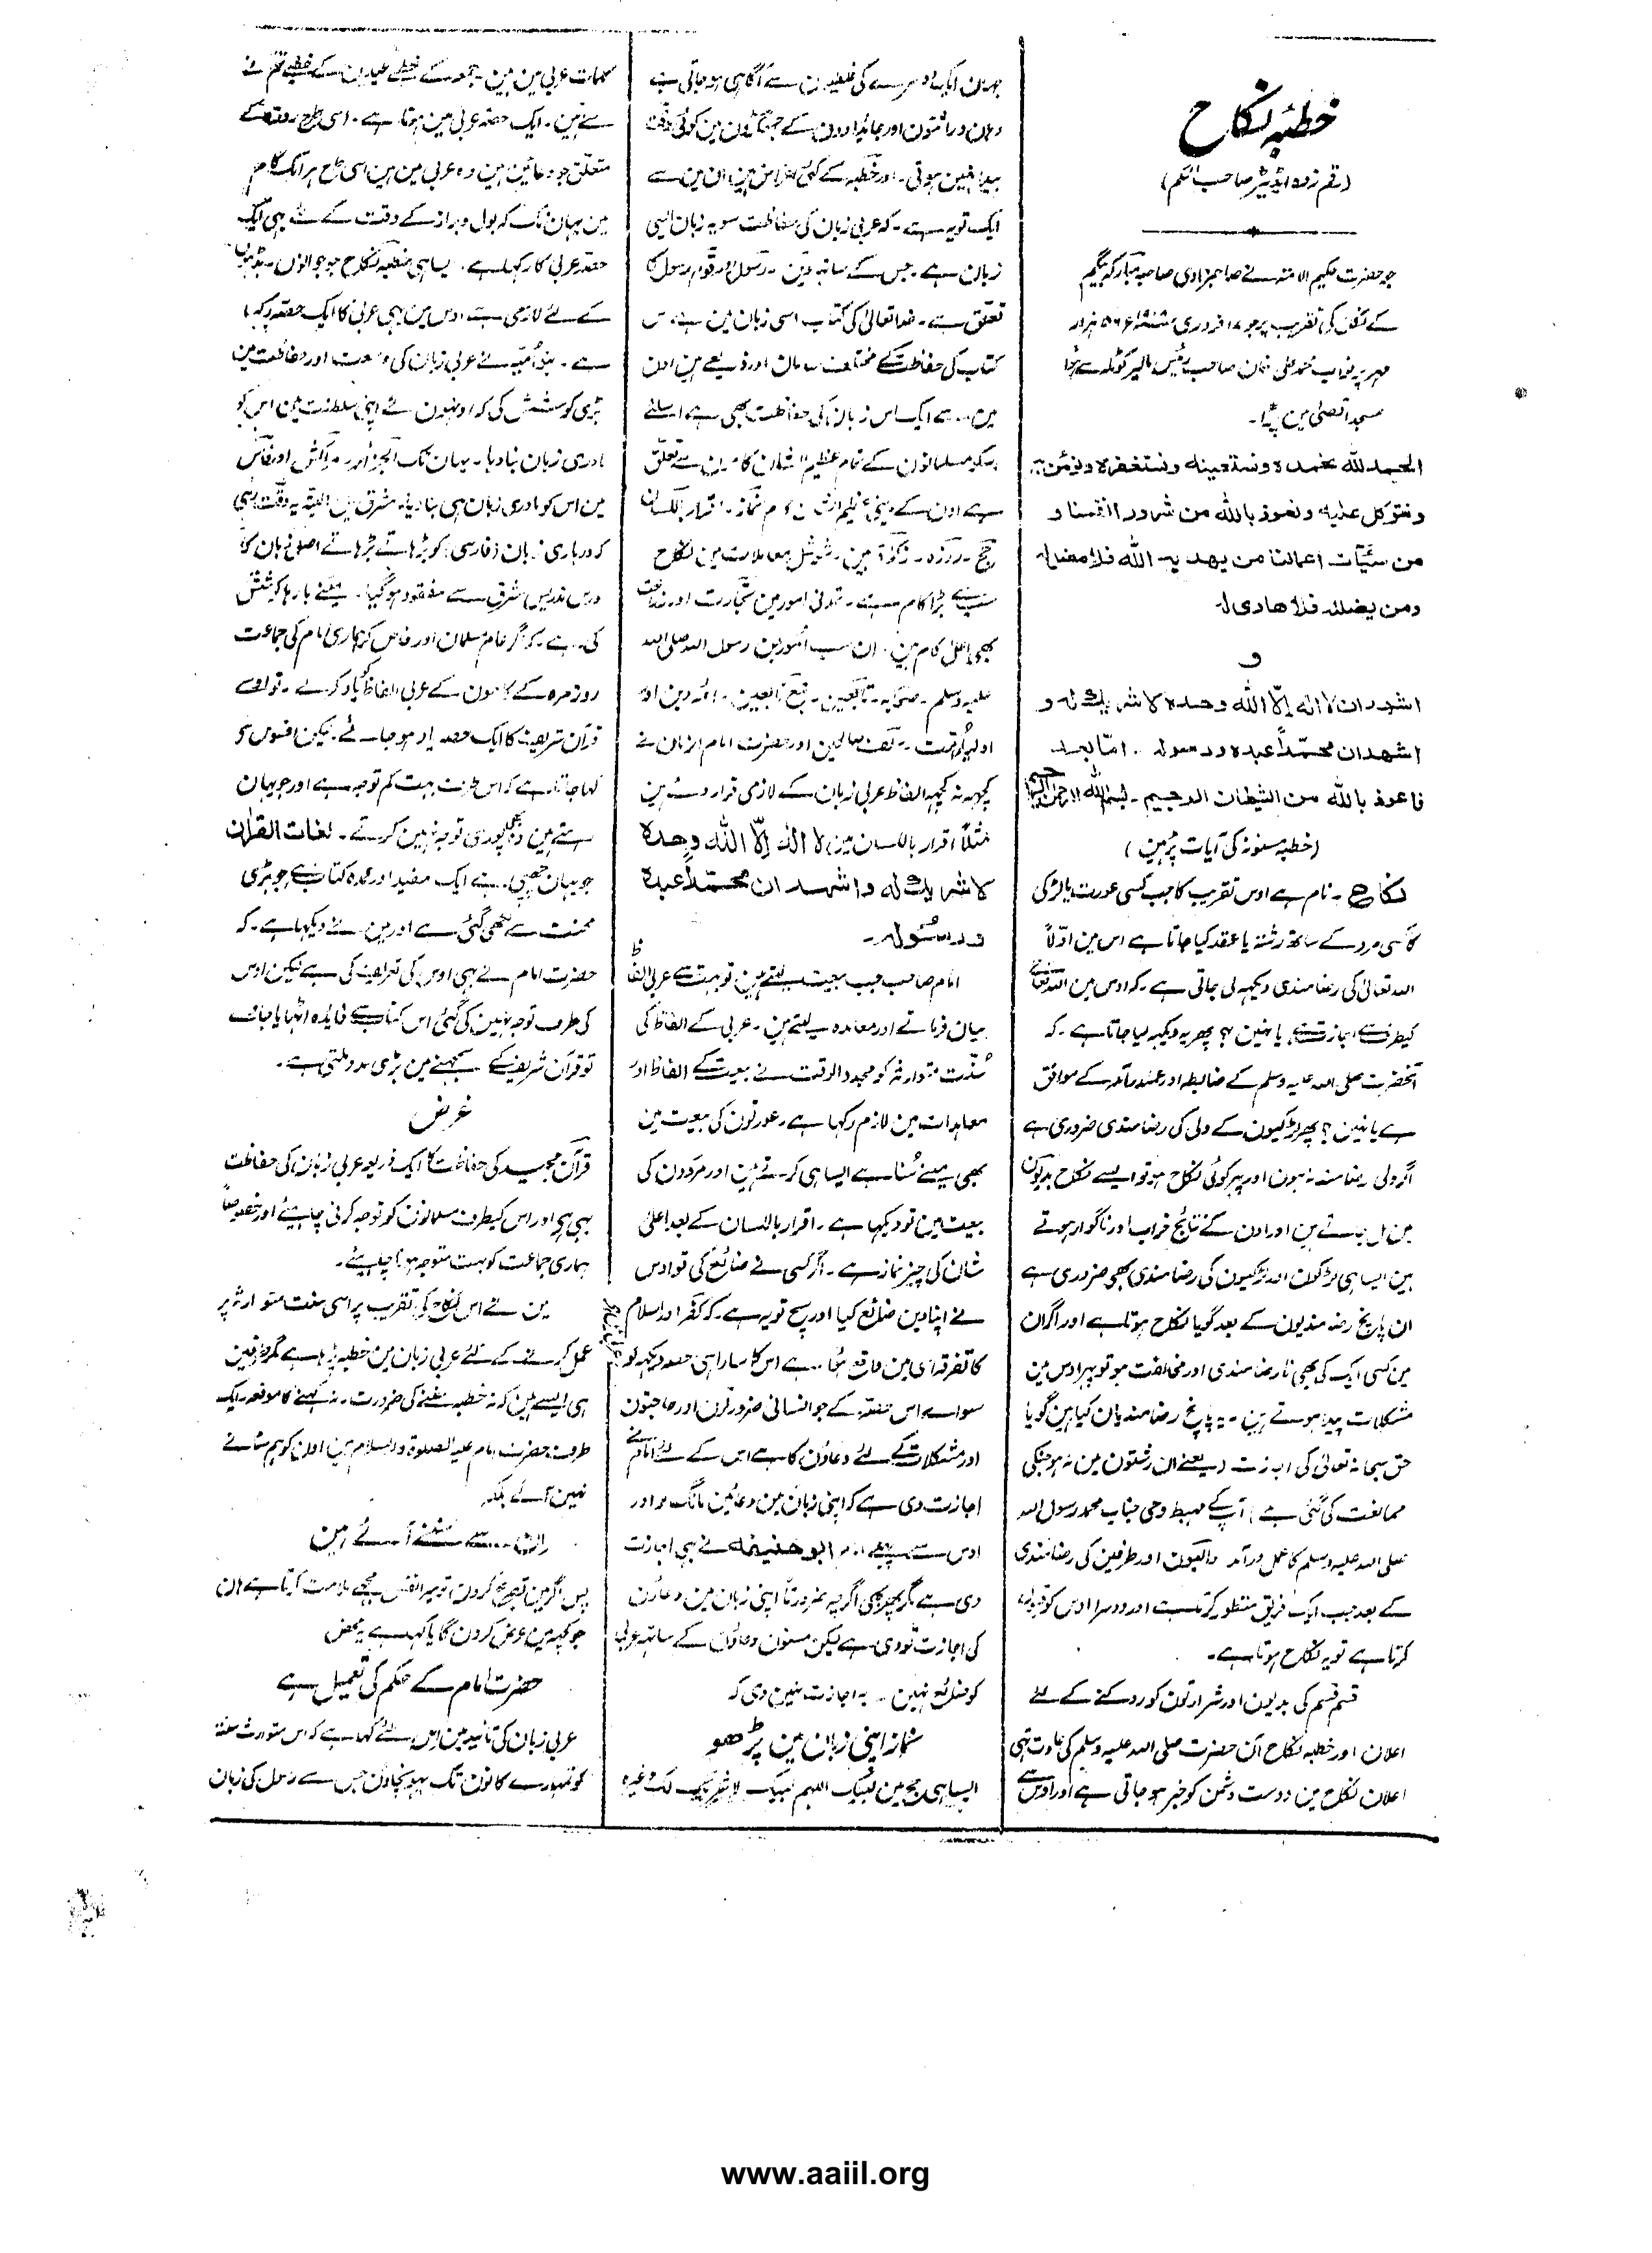 خطبۂ نکاح
(رقم زدہ ایڈیٹر صاحب الحکم)
جو حضرت حکیم الامۃ نے صاحبزادی صاحبہ مبارکہ بیگم
کے نکاح کی تقریب پر جو ۱۷ فروری ۱۹۰۸ء ۵۶ ہزار
مہر پر نواب محمد علی خان صاحب رئیس مالیر کوٹلہ سے ہوا
مسجد اقصیٰ مین پڑھا۔
الحمد للہ نحمدہ و نستعینہ و نستغفرہ و نؤمن بہ
و نتوکل علیہ و نعوذ باللہ من شرور انفسنا و
من سیّات اعمالنا من یھدیہ اللہ فلا مضل لہ
ومن یضللہ فلا ھادی لہ
و
اشھد ان لا الہ الّا اللہ وحدہ لا شریک لہ و
اشھد ان محمّداً عبدہ ورسولہ۔ امّا بعد
فاعوذ باللہ من الشیطان الرجیم۔ بسم اللہ الرحمن الرحیم
(خطبہ مسنونہ کی آیات پڑہین)
نکاح۔ نام ہے اوس تقریب کا جب کسی عورت یا لڑکی
کا کسی مرد کے ساتھ رشتہ یا عقد کیا جاتا ہے اس مین اوّلاً
اللہ تعالیٰ کی رضامندی دیکھ لی جاتی ہے۔ کہ اوس مین اللہ تعالےٰ
کیطرف سے اجازت ہے یا نہین؟ پھر یہ دیکھ لیا جاتا ہے۔ کہ
آنحضرت صلی اللہ علیہ وسلم کے ضابطہ اور عملدرآمد کے موافق
ہے یا نہین؟ پھر لڑکیون کے ولی کی رضامندی ضروری ہے
اگر ولی رضامند نہ ہون اور پھر کوئی نکاح ہو تو ایسے نکاح بدیون
مین مل جاتے ہین اور اون کے نتائج خراب اور ناگوار ہوتے
ہین ایسا ہی لڑکون اور لڑکیون کی رضامندی بھی ضروری ہے
ان پانچ رضامندیون کے بعد گویا نکاح ہوتا ہے اور اگر ان
مین کسی ایک کی بھی نارضامندی اور مخالفت ہو تو پھر اوس مین
مشکلات پیدا ہوتے ہین۔ یہ پانچ رضامندیان کیا ہین گویا
حق سبحانہ تعالیٰ کی اجازت (یعنے ان رشتون مین نہ ہو جنکی
ممانعت کی گئی ہے) آپ کے مہبط وحی جناب محمد رسول اللہ
صلی اللہ علیہ وسلم کا عمل درآمد والیون اور طرفین کی رضامندی
کے بعد جب ایک فریق منظور کرتا ہے اور دوسرا اوس کو قبول
کرتا ہے تو یہ نکاح ہوتا ہے۔
قسم قسم کی بدیون اور شرارتون کو روکنے کے لئے
اعلان اور خطبہ نکاح آن حضرت صلی اللہ علیہ وسلم کی عادت تہی
اعلان نکاح مین دوست دشمن کو خبر ہو جاتی ہے اور اوس سے
جہان ایک دوسرے کی غلطیون سے آگاہی ہو جاتی ہے
وہان وراثتون اور جائیدادون کے جھگڑون مین کوئی دقت
پیدا نہین ہوتی۔ اور خطبہ کے کئی اغراض ہین ان مین سے
ایک تو یہ ہے۔ کہ عربی زبان کی حفاظت ہو یہ زبان ایسی
زبان ہے جس کے ساتھ دین۔ رسول اور قوم رسول کا
تعلق ہے۔ خدا تعالیٰ کی کتاب اسی زبان مین ہے اس
کتاب کی حفاظت کے مختلف سامان اور ذریعے ہین اون
مین سے ایک اس زبان کی حفاظت بھی ہے اسلئے
اسکو مسلمانون کے تمام عظیم الشان کامون سے تعلق
ہے اون کے دینی عظیم الشان کام نماز۔ اقرار باللسان
حج۔ روزہ۔ زکوٰۃ ہین۔ سوشیل معاملات مین نکاح
سب سے بڑا کام ہے۔ تمدنی امور مین تجارت اور زراعت
بھی اعلیٰ کام ہین۔ ان سب امور مین رسول اللہ صلی اللہ
علیہ وسلم۔ صحابہ۔ تابعین۔ تبع تابعین۔ ائمہ دین اور
اولیاء امت۔ سلف صالحین اور حضرت امام الزمان نے
کچھ نہ کچھ الفاظ عربی زبان کے لازمی قرار دئے ہین
مثلاً اقرار باللسان مین لا الہ الّا اللہ وحدہ
لا شریک لہ و اشھد ان محمّداً عبدہ
ورسولہ۔
امام صاحب جب بیعت لیتے ہین تو بہت سے عربی الفاظ
بیان فرماتے اور معاہدہ لیتے ہین۔ عربی کے الفاظ کی
سنّت متوارثہ کو مجدد الوقت نے بیعت کے الفاظ اور
معاہدات مین لازم رکھا ہے۔ عورتون کی بیعت مین
بھی مینے سُنا ہے ایسا ہی کرتے ہین اور مردون کی
بیعت مین تو دیکھا ہے۔ اقرار باللسان کے بعد اعلیٰ
شان کی چیز نماز ہے۔ اگر کسی نے ضائع کی تو اوس
نے اپنا دین ضائع کیا اور سچ تو یہ ہے۔ کہ کفر اور اسلام
کا تفرقہ اسی مین واقع ہوا ہے اس کا سارا ہی حصہ دیکھ لو
سواے اس حصّہ کے جو انسانی ضرورتون اور حاجتون
اور مشکلات کے لئے دعاؤن کا ہے اس کے لئے امام نے
اجازت دی ہے کہ اپنی زبان مین دعائین مانگ لو اور
اوس سے پہلے امام ابو حنیفہ نے بھی اجازت
دی ہے مگر پھر بھی اگرچہ ضرورتاً اپنی زبان مین دعاؤن
کی اجازت تو دی ہے لیکن مسنون دعاؤن کے ساتھ عربی
کو ضائع نہین۔ یہ اجازت نہین دی کہ
نماز اپنی زبان مین پڑھو
ایسا ہی حج مین لبیک اللہم لبیک لا شریک لک وغیرہ
کلمات عربی مین ہین۔ جمعہ کے خطبے عیدین کے خطبے تم نے
سنے ہین۔ ایک حصہ عربی مین ہوتا ہے۔ اسی طرح روزہ کے
متعلق جو دعائین ہین وہ عربی مین ہین اسی طرح ہر ایک کام
مین یہان تک کہ بول و براز کے وقت کے لئے بہی ایک
حصہ عربی کا رکہا ہے۔ ایسا ہی خطبہ نکاح جو جوانون۔ بڈہون
کے لئے لازمی ہے اوس مین بہی عربی کا ایک حصہ رکہا
ہے۔ بنو امیّہ نے عربی زبان کی وسعت اور حفاظت مین
بڑی کوشش کی کہ اونہون نے اپنی سلطنت مین اس کو
مادری زبان بنا دیا۔ یہان تک الجزائر۔ مراکش اور فاس
مین اس کو مادری زبان ہی بنا دیا۔ مشرق مین البتہ یہ دقت رہی
کہ درباری زبان (فارسی) کو بڑہاتے بڑہاتے اصل زبان کا
درس تدریس مشرق سے مفقود ہو گیا۔ مینے بارہا کوشش
کی ہے۔ کہ اگر عام مسلمان اور خاص کر ہماری امام کی جماعت
روزمرہ کے کامون کے عربی الفاظ کو یاد کر لے۔ تو اوسے
قرآن شریف کا ایک حصہ یاد ہو جائے۔ لیکن افسوس سے
کہا جاتا ہے کہ اس طرف بہت کم توجہ ہے اور جو یہان
رہتے ہین وہ بھی پوری توجہ نہین کرتے۔ لغات القرآن
جو یہان چھپی ہے ایک مفید اور عمدہ کتاب ہے جو بڑی
محنت سے لکھی گئی ہے اور مین نے دیکہا ہے۔ کہ
حضرت امام نے بہی اوس کی تعریف کی ہے لیکن اوس
کی طرف توجہ نہین کی گئی اس کتاب سے فایدہ اٹھایا جائے
تو قرآن شریف کے سمجھنے مین بڑی مدد ملتی ہے۔
غرض
قرآن مجید کی حفاظت کا ایک ذریعہ عربی زبان کی حفاظت
بہی ہے اور اس کیطرف مسلمانون کو توجہ کرنی چاہیئے اور خصوصاً
ہماری جماعت کو بہت متوجہ ہونا چاہیئے۔
مین نے اس نکاح کی تقریب پر اسی سنت متوارثہ پر
عمل کرنے کے لئے عربی زبان مین خطبہ پڑہا ہے مگر طرفین
ہی ایسے ہین کہ نہ خطبہ سننے کی ضرورت۔ نہ کہنے کا موقعہ۔ ایک
طرف حضرت امام علیہ الصلوۃ والسلام ہین اون کو ہم سنانے
نہین آئے بلکہ
ان سے سننے آئے ہین
پس اگر مین نصیحت کرون تو میرا نفس مجھے ملامت کرتا ہے ان
جو کچھ مین عرض کرون گا یا کہا ہے یہ محض
حضرت امام کے حکم کی تعمیل ہے
عربی زبان کی تائید مین اس لئے کہا ہے کہ اس متوارث سنت
کو تمہارے کانون تک پہونچاؤن جس سے رسول کی زبان
www.aaiil.org